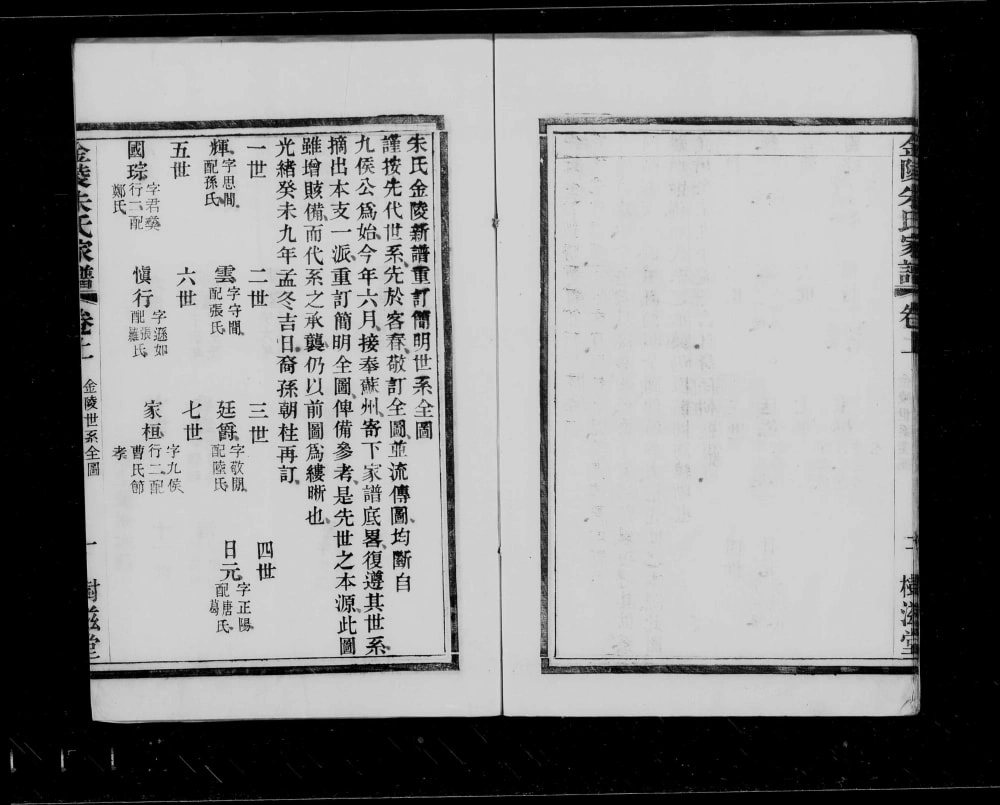 金陵朱氏家譜 卷二 二 樹滋堂
朱氏金陵新譜重訂簡明世系全圖
謹按先代世系先於客春敬訂全圖並流傳圖均斷自
九侯公爲始今年六月接奉蘇州寄下家譜底畧復遵其世系
摘出本支一派重訂簡明全圖俾備參考是先世之本源此圖
雖增賅備而代系之承襲仍以前圖爲縷晰也
光緒癸未九年孟冬吉日裔孫朝柱再訂
一世 二世 三世 四世
輝 字思閒 配孫氏
雲 字守閒 配張氏
廷爵 字敬閒 配陸氏
日元 字正陽 配唐氏 葛
五世 六世 七世
國琮 字君奭 行二配 鄭氏
愼行 字遜如 配張氏 羅
家桓 字九侯 行二配 曹氏節 孝
金陵朱氏家譜 卷二 金陵世系全圖 一 樹滋堂